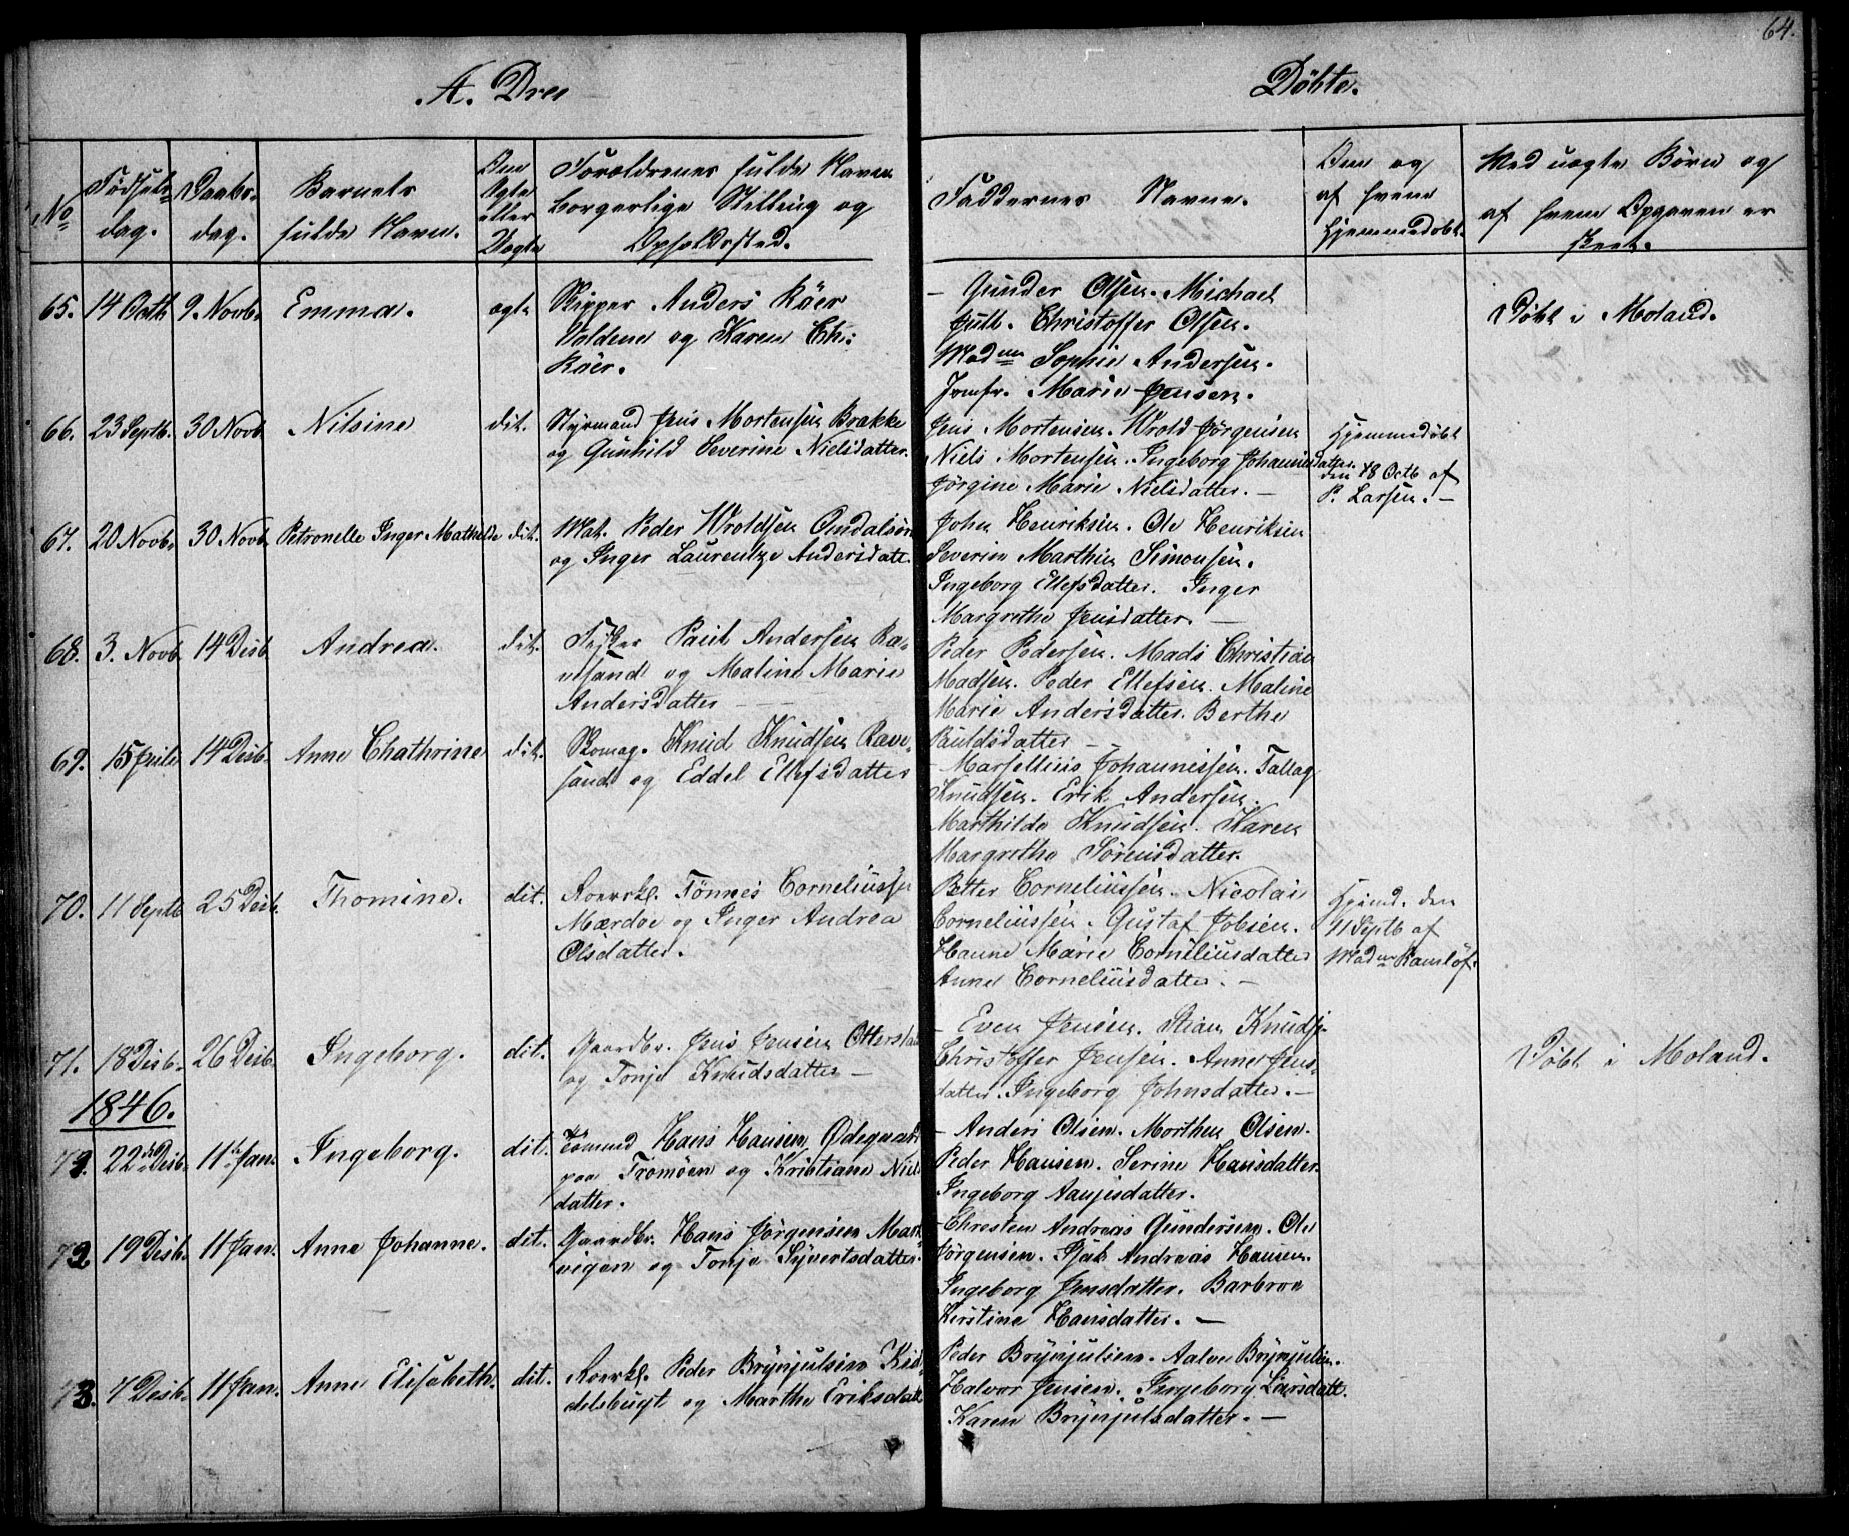 64.
A. Dres Döbte.
No
Födsels-
dag.
Daabs-
dag.
Barnets
fulde Navn.
Om
Ægte
eller
Uegte
Forældrenes fulde Navn
borgerlige Stilling og
Opholdssted.
Faddernes Navne.
Om og
af hvem
Hjemmedöbt.
Med uægte Börn og
af hvem Opgaven er
skeet.
65. 14 Octb 9. Novb. Emma. ægte
Skipper Anders Käer
Voldene og Karen Chr:
Käer.
- Gunder Olsen. Michael
Jull. Christoffer Olsen.
Madme Sophie Andersen.
Jomfr. Marie Jensen.
Döbt i Moland.
66. 23 Septb. 30 Novb Nilsine dit.
Styrmand Jens Mortensen Brække
og Gunhild Severine Nielsdatter.
Jens Mortensen. Wrold Jörgensen
Niels Mortensen. Ingeborg Johannesdatter.
Jörgine Marie Nielsdatter. -
Hjemmedöbt
den 18 Octb af
P. Larsen. -
67. 20 Novb. 30 Novb. Petronelle Inger Mathilde dit.
Mat. Peder Wroldsen Omdalsören
og Inger Laurentze Andersdatt.
John Henriksen. Ole Henriksen
Severin Marthin Simonsen.
Ingeborg Ellefsdatter. Inger
Margrethe Jensdatter. -
68. 3. Novb. 14 Desb. Andrea. dit.
Paul Andersen Ra-
vesand og Maline Marie
Andersdatter -
Peder Pedersen. Mads Christian
Madsen. Peder Ellefsen. Maline
Marie Andersdatter. Berthe
Pauldsdatter -
69. 15 14 Desb. Anne Chathrine dit.
Skomag. Knud Knudsen Rave-
sand og Eddel Ellefsdatter
- Marsellius Johannessen. Tallag
Knudsen. Erik Andersen.
Marthilde Knudsen. Karen
Margrethe Sörensdatter.
70. 11 Septb 25 Desb. Thomine. dit.
Tönnes Corneliussen
Mærdoe og Inger Andrea
Olsdatter.
Petter Corneliussen. Nicolai
Corneliussen. Gustaf Jobsen.
Hanne Marie Corneliusdatter
Anne Corneliusdatter. -
Hjemd. den
11 Septb af
Madme Ramlöf.
71. 18 Desb. 26 Desb. Ingeborg. dit.
Gaardbr. Jens Jensen
og Tonje Knudsdatter -
- Even Jensen. Stian Knudsen
Christoffer Jensen. Anne Jens-
datter. Ingeborg Johnsdatter. -
Döbt i Moland.
1846.
22 Desb. 11 Jan. Ingeborg. dit.
Hans Hansen Ödegaard
paa Tromöen og Kristiane Niels
datter.
- Anders Olsen. Morthen Olsen.
Peder Hansen. Serine Hansdatter.
Ingeborg Aanjesdatter.
2. 19 Desb. 11 Jan. Anne Johanne. dit.
Gaardbr. Hans Jörgensen Mar-
vigen og Tonje Syvertsdatter.
- Chresten Andreas Gundersen. Ole
Jörgensen. Isak Andreas Hansen.
Ingeborg Jensdatter. Barbroe
Kirstine Hansdatter. -
3. 7 Desb. 11 Jan. Anne Elisabeth. dit.
Peder Brynjulsen Kid-
delsbugt og Marthe Eriksdatt
Peder Brynjulsen. Aalve Brynjulsen.
Halvor Jensen. Ingeborg Larsdatt.
Karen Brynjulsdatter. -